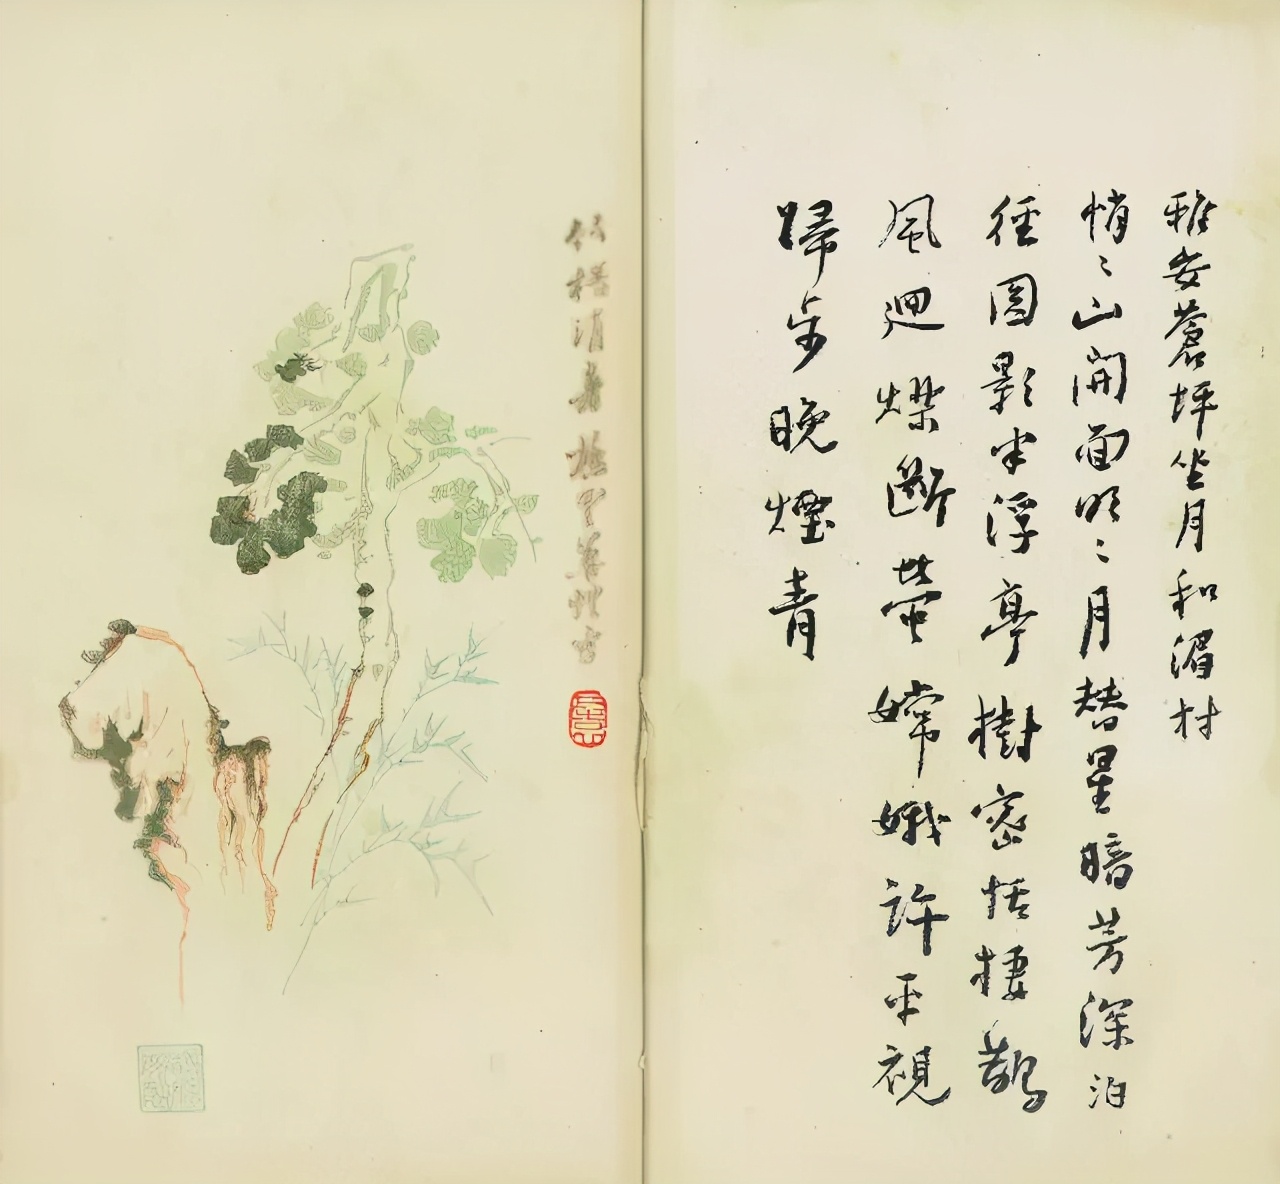 雅安蒼坪坐月和湄村
悄〻山開面明〻月替星暗芳深泊
徑圓影半浮亭樹密恬棲鵲
風迴爍斷螢嫦娥許平視
歸步晚煙青
竹梧消夏